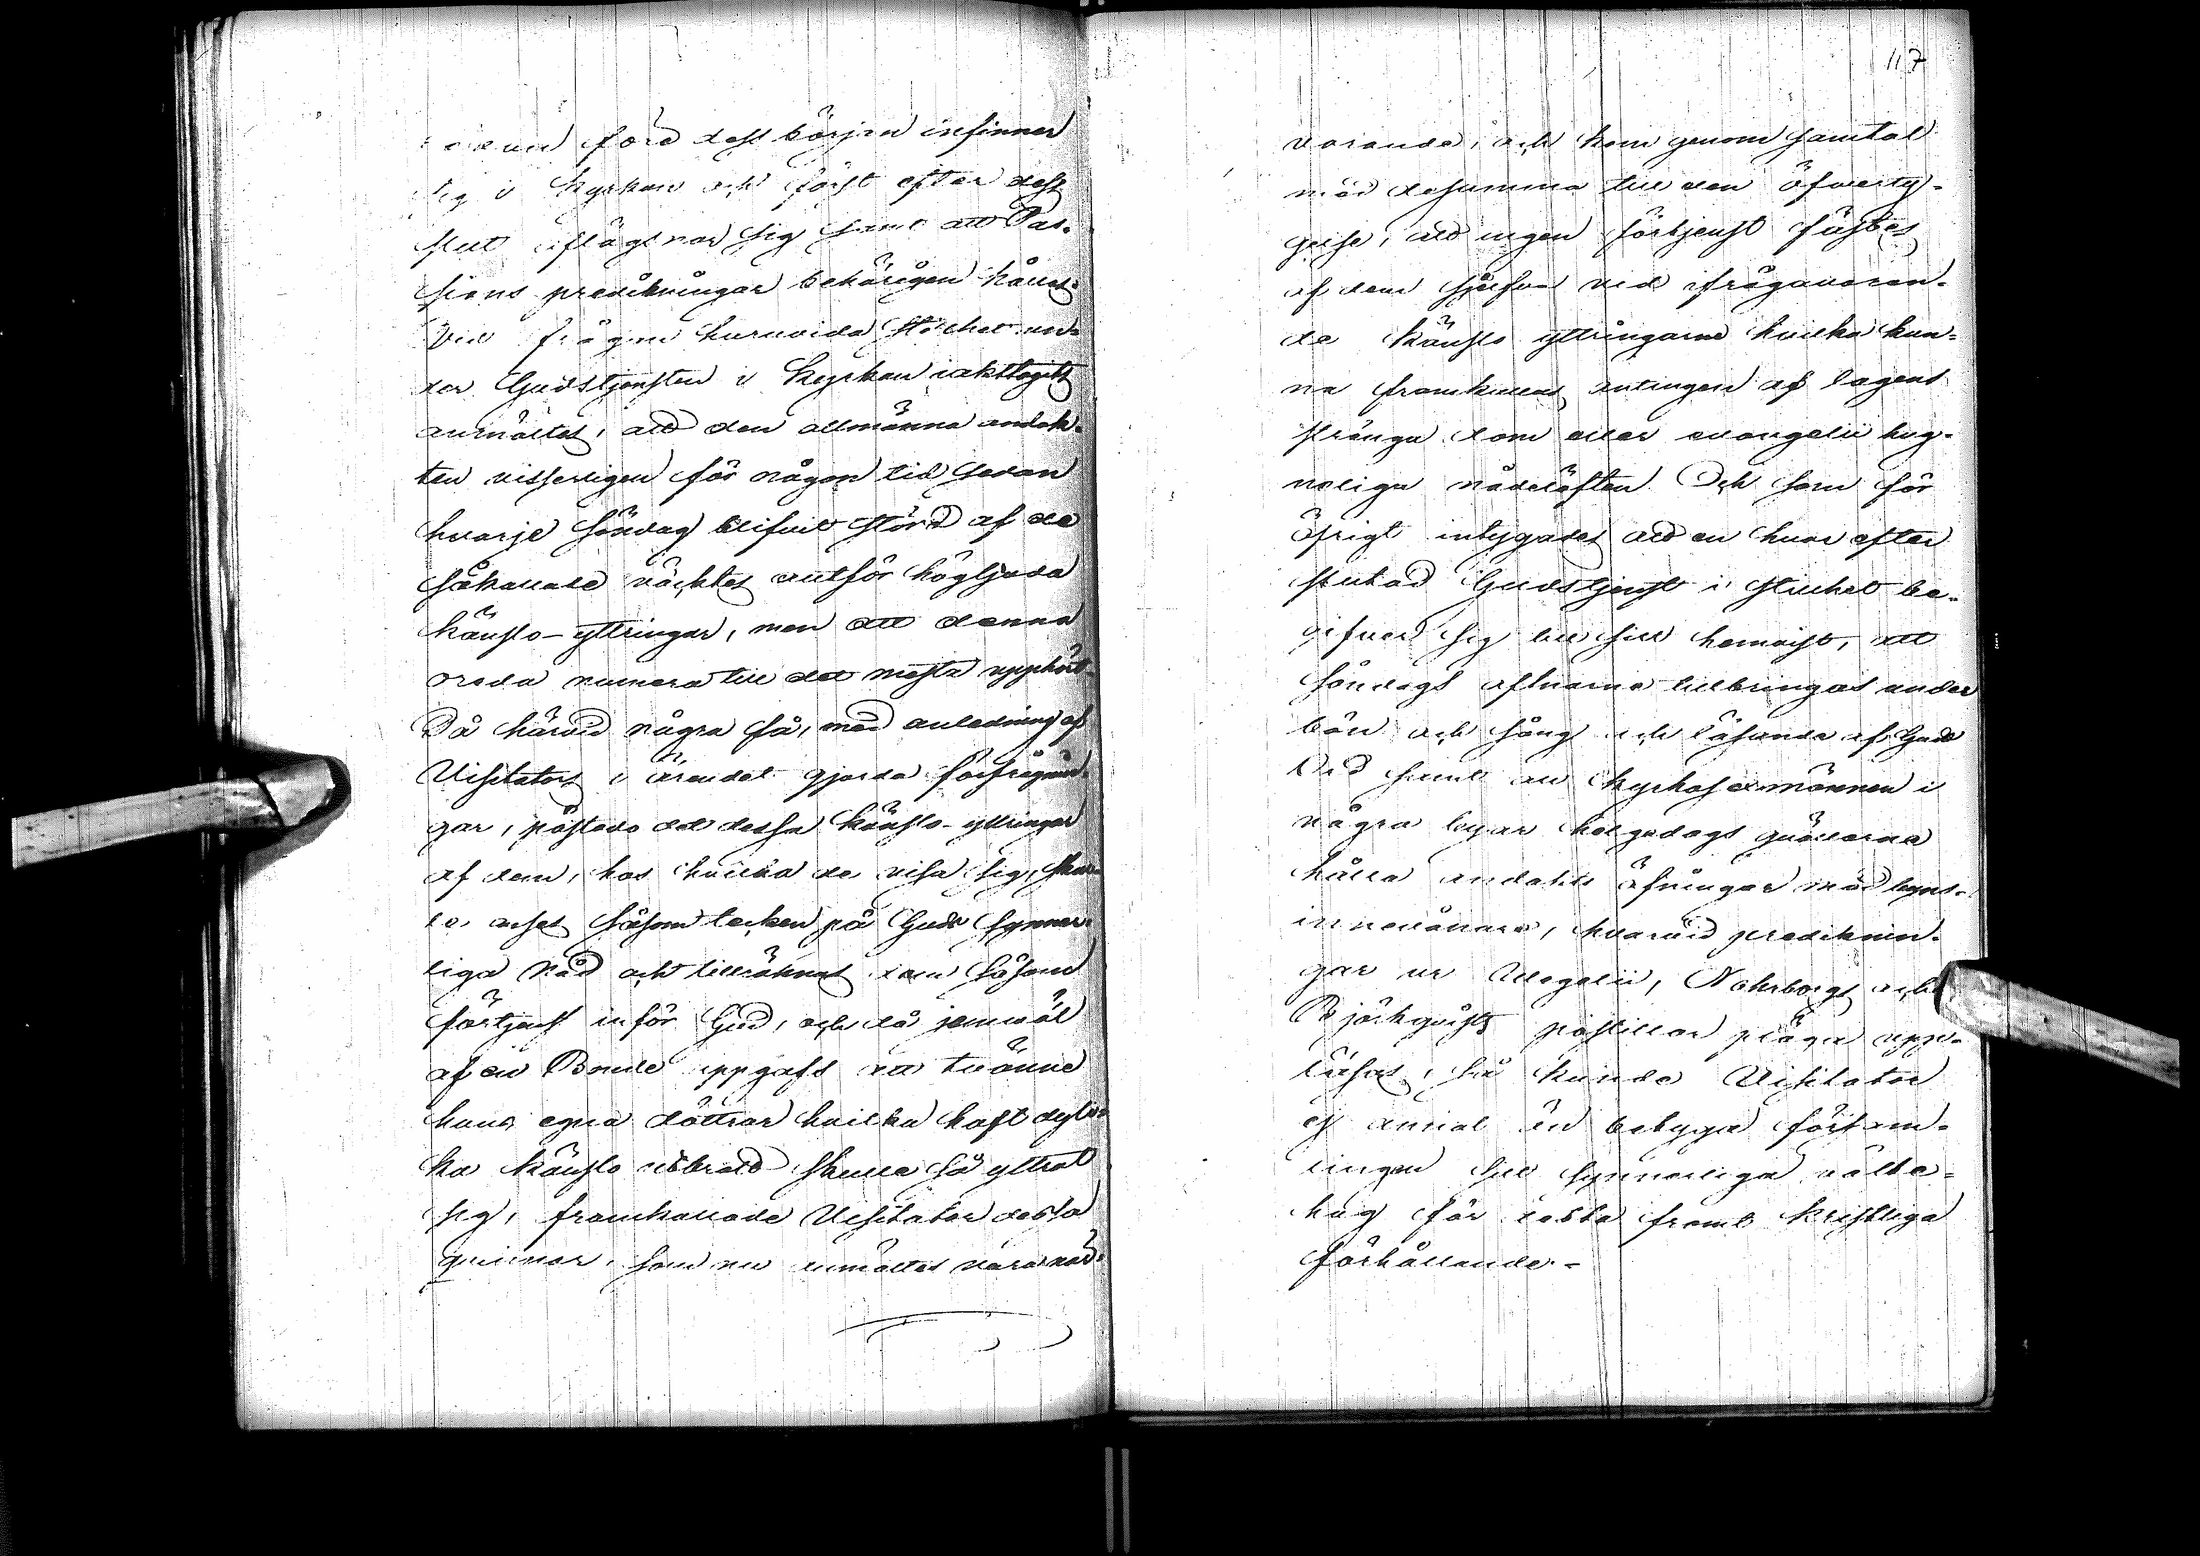 före dess börjen infinner
sig i Kyrkan och först efter dess
slut aflägsnar sig samt att Pas-
sions predikningar behörigen hållas.
Vid frågan huruvida stillhet un-
der Gudstjensten i Kyrkan iakttagits
anmältes, att den allmänna andak-
ten visserligen för någon tid sedan
hvarje Söndag blifvit störd af de
såkallade väcktes utför högljuda
känslo-yttringar, men att denna
oreda numera till det mesta upphört.
Då härvid några få, med anledning af
Visitators i ärendet gjorda förfrågnin-
gar, påstodo att dessa känslo-yttringar
af dem, hos hvilka de visa sig, skul-
le anses såsom tecken på Guds synner-
liga Nåd och tillräknas dem såsom
förtjenst inför Gud, och då jemväl
af en Bonde uppgafs att tvänne
hans egna döttrar hvilka haft dyli-
ka känslo utbrott skulle så yttrat
sig, framkallade Visitator dessa
quinnor, som nu anmältes vara när-
117
varande, och kom genom samtal
med desamma till den öfverty-
gelse, att ingen förtjenst fästes
af dem sjelfva vid ifrågavaran-
de känslo yttringarne hvilka kun-
na framkallas antingen af lagens
stränga dom eller evangelii hug-
neliga nådelöften. Och som för
öfrigt intygades att en hvar efter
slutad Gudstjenst i stillhet be-
gifver sig till sitt hemvist, att
Söndags aftnarna tillbringas under
bön och sång och läsande af Guds
Ord samt att Kyrkosexmännen i
några byar helgedags qvällarna
hålla andakts öfningar med byns
innevånare, hvarvid predikнin-
gar ur Nohrborgs och
Björkqvists postillor pläga upp-
läsas, så kunde Visitator
ej annat än betyga försam-
lingen sitt synnerliga välbe-
hag för detta fromt Kristliga
förhållande.-